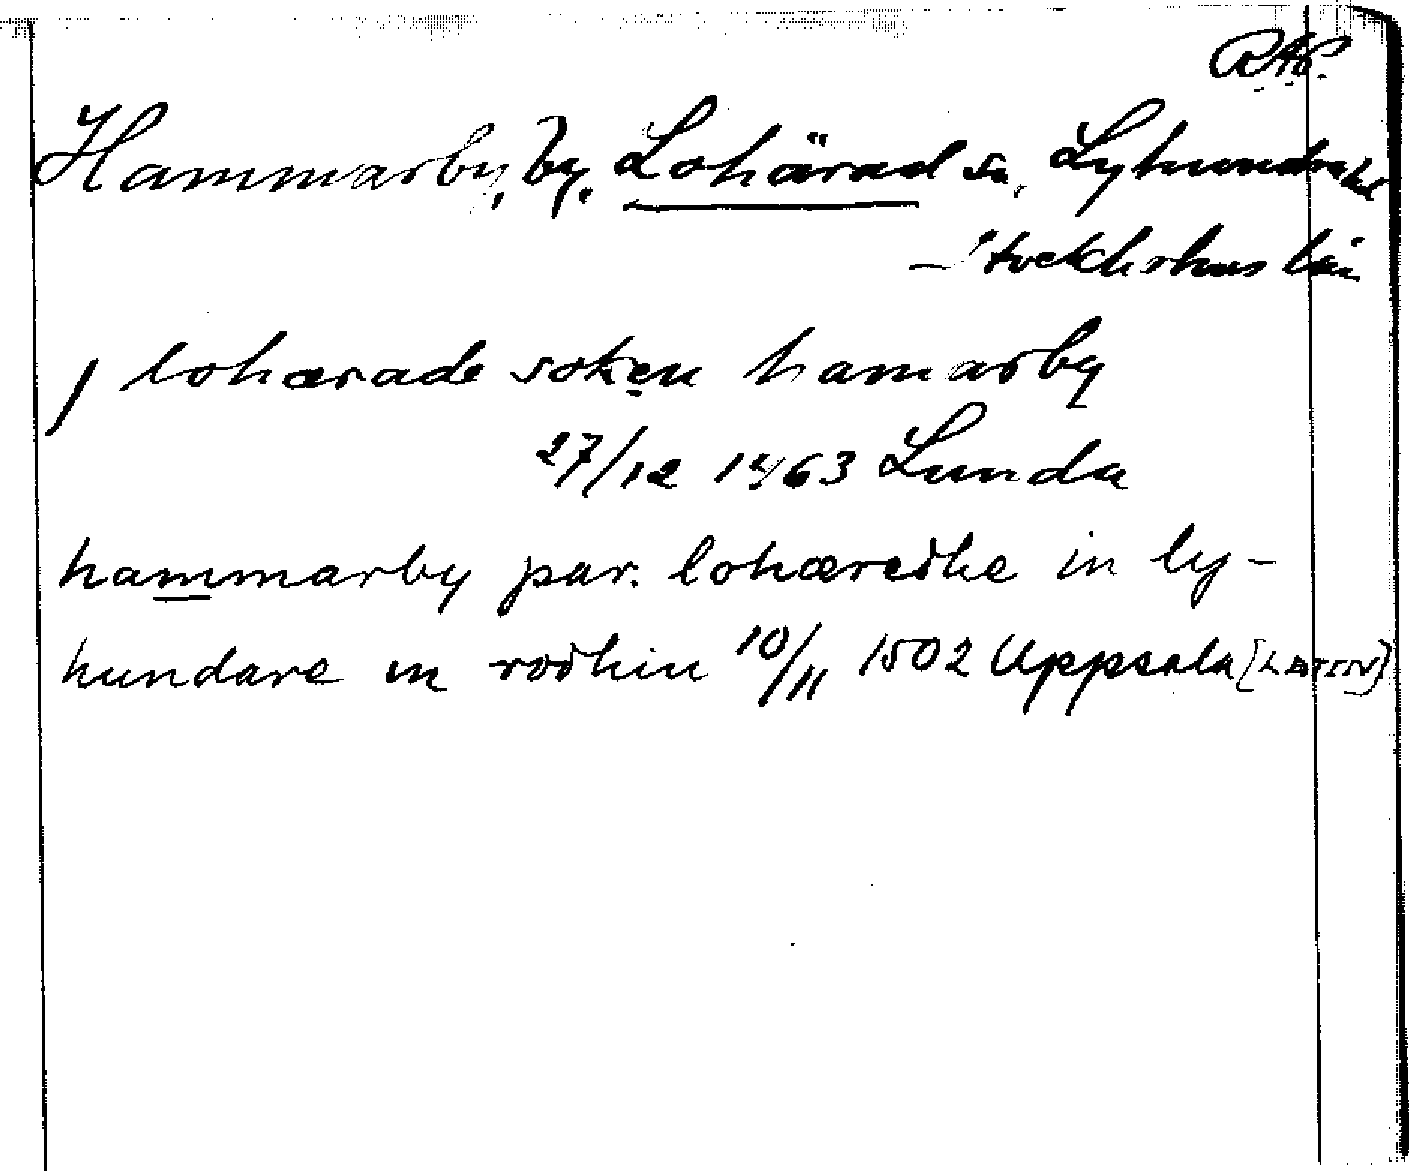 RAp.
Hammarby, by, Lohärad sn, Lyhundra hd
Stockholms län
j lohærade soken hamarby
27/12 1463 Lunda
hammarby par. lohæredhe in ly-
hundare in rodhin 10/11 1502 Uppsala